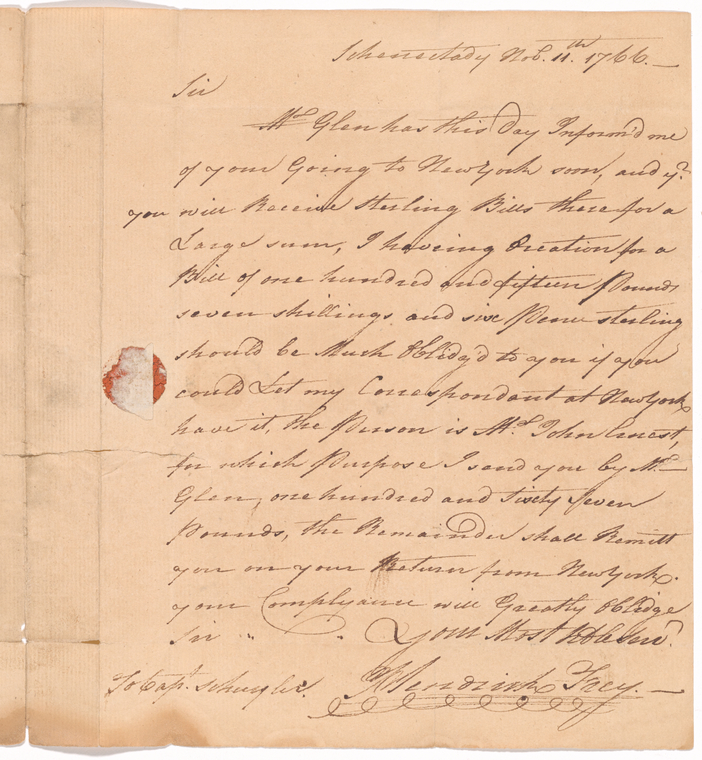 Schenectady Nov. 11.th 1766.
Sir
Mr. Glen has this Day Inform'd me
of your Going to New York soon, and yt
you will Receive sterling Bills there for a
Large sum, I having Occation for a
Bill of one hundred and fifteen Pounds
seven shillings and six Pence sterling
should be Much Oblidg'd to you if you
could Let my Correspondant at New York
have it, the Person is Mr. John Ernest,
for which Purpose I send you by Mr.
Glen, one hundred and Sixty Seven
Pounds, the Remainder shall Remitt
you on your Return from New York.
your Complyance will Greatly Oblidge
Sir Your Most Hble Servt.
To Capt. Schuyler. Hendrick Frey.